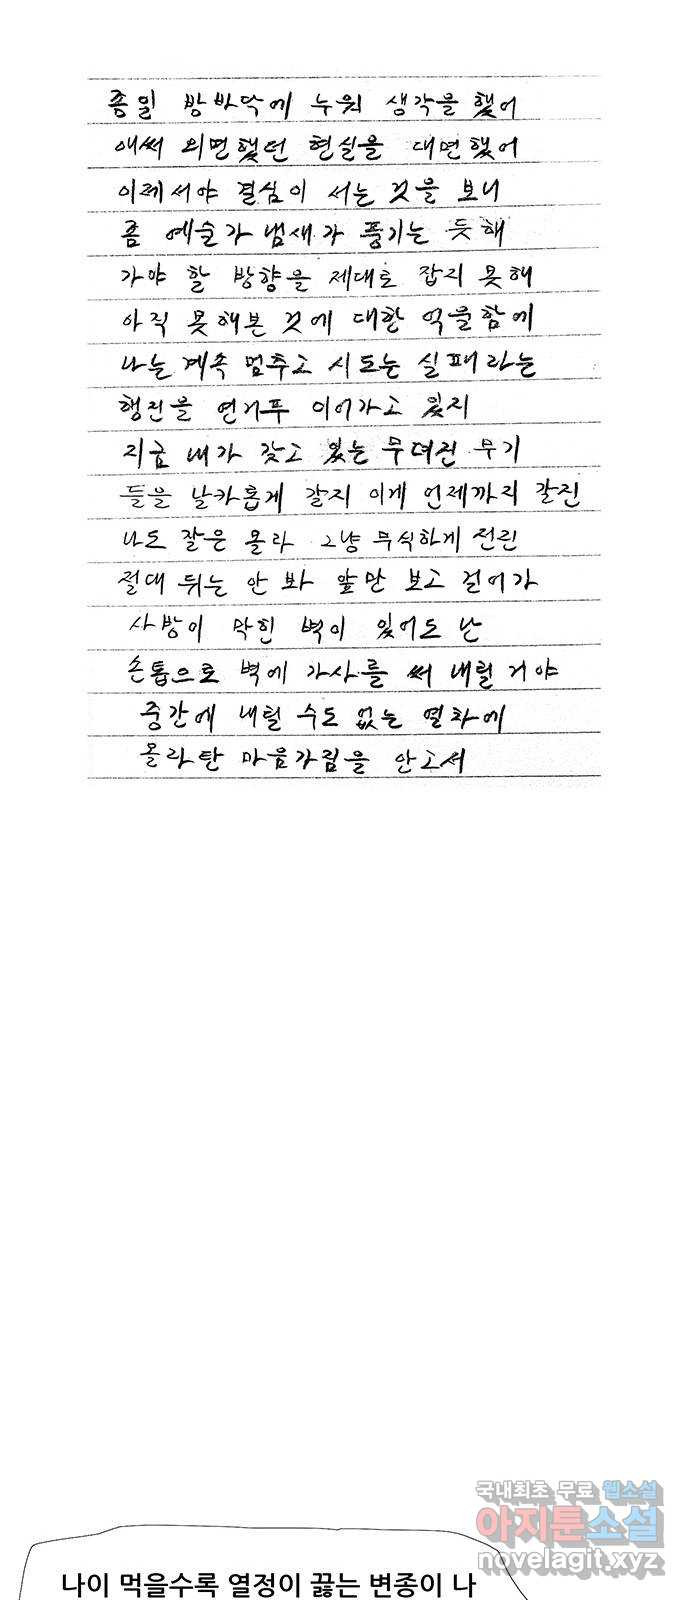 종일 방바닥에 누워 생각을 했어
애써 외면했던 현실을 대면했어
이제서야 결심이 서는 것을 보니
좀 예술가 냄새가 풍기는 듯해
가야 할 방향을 제대로 잡지 못해
아직 못해본 것에 대한 억울함에
나는 계속 멈추고 시도는 실패라는
행진을 연거푸 이어가고 있지
지금 내가 갖고 있는 무뎌진 무기
들을 날카롭게 갈지 이게 언제까지 갈진
나도 잘은 몰라 그냥 무식하게 전진
절대 뒤는 안 봐 앞만 보고 걸어가
사방이 막힌 벽이 있어도 난
손톱으로 벽에 가사를 써 내릴 거야
중간에 내릴 수도 없는 열차에
올라탄 마음가짐을 안고서
국내최초 무료 웹소설
아지툰소설
novelagit.xyz
나이 먹을수록 열정이 끓는 변종이 나